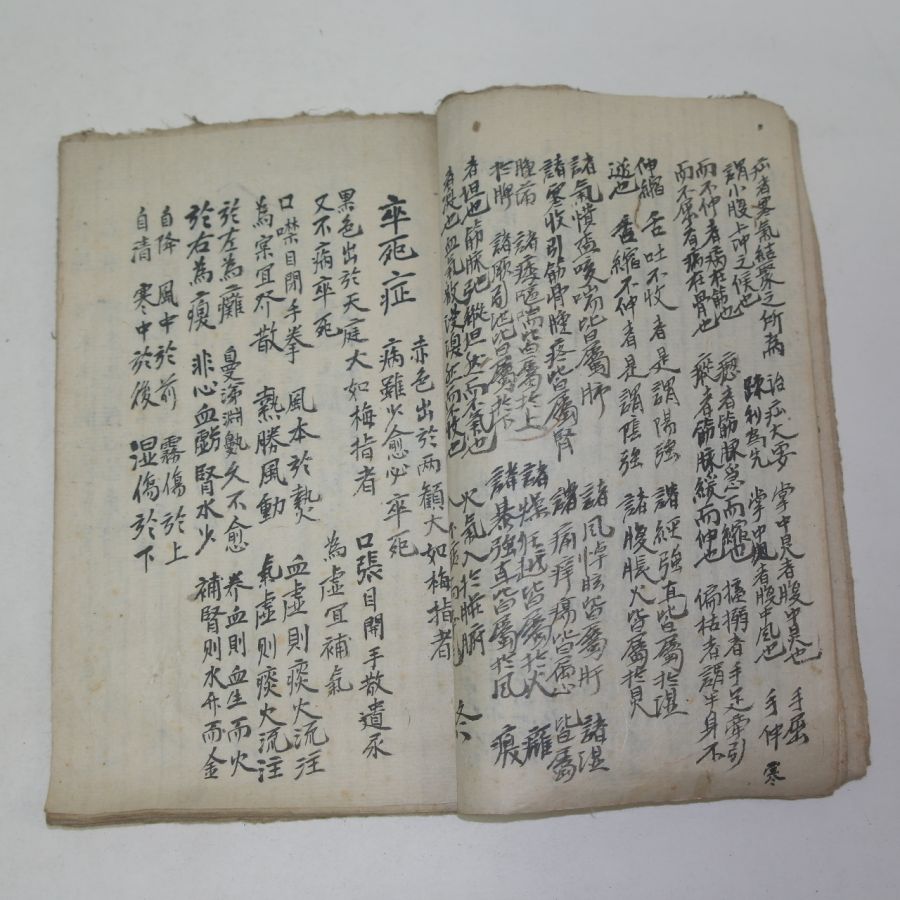 疝者寒氣結聚之所為 治疝大要 掌中寒者腹中寒也 手屈
謂小腹上冲之候也 疎利為先 掌中風者腹中風也 手伸 寒
而不伸者病在筋也 瘛者筋脉急而縮也 搐搦者手足牽引
而不屈者病在骨也 瘲者筋脉緩而伸也 偏枯者謂半身不
伸縮 舌吐不收者是謂陽強 諸經強直皆屬於湿
遂也 舌縮不伸者是謂陰強 諸腹脹大皆屬於
諸氣憤鬱喘皆屬肺 諸風悼眩皆屬肝 諸湿
諸寒收引筋骨腫疼皆屬腎 諸痛痒瘍皆屬心 皆屬
腫满 諸痿喘皆屬於上 諸燥狂越皆屬於火 癱
於脾 皆屬於下 諸暴強直皆屬於風 瘓
者坦也筋脉弛縱坦然而不氣也 火氣入於臟腑
者渙也血氣散漫渙然而不收也
卒死症 赤色出於兩顴大如梅指者
病難少愈必卒死
黑色出於天庭大如梅指者
又不病卒死 口張目開手散遺尿
口噤目閉手拳 為虛宜補氣
為宲宜發散 風本於熱 血虛則痰火流注
於左為癱 熱勝風動 氣虛則痰火流注
於右為瘓 久不愈 養血則血生而火
自降 非心血虧腎水少 補腎則水升而金
自清 風中於前 霧傷於上
寒中於後 湿傷於下